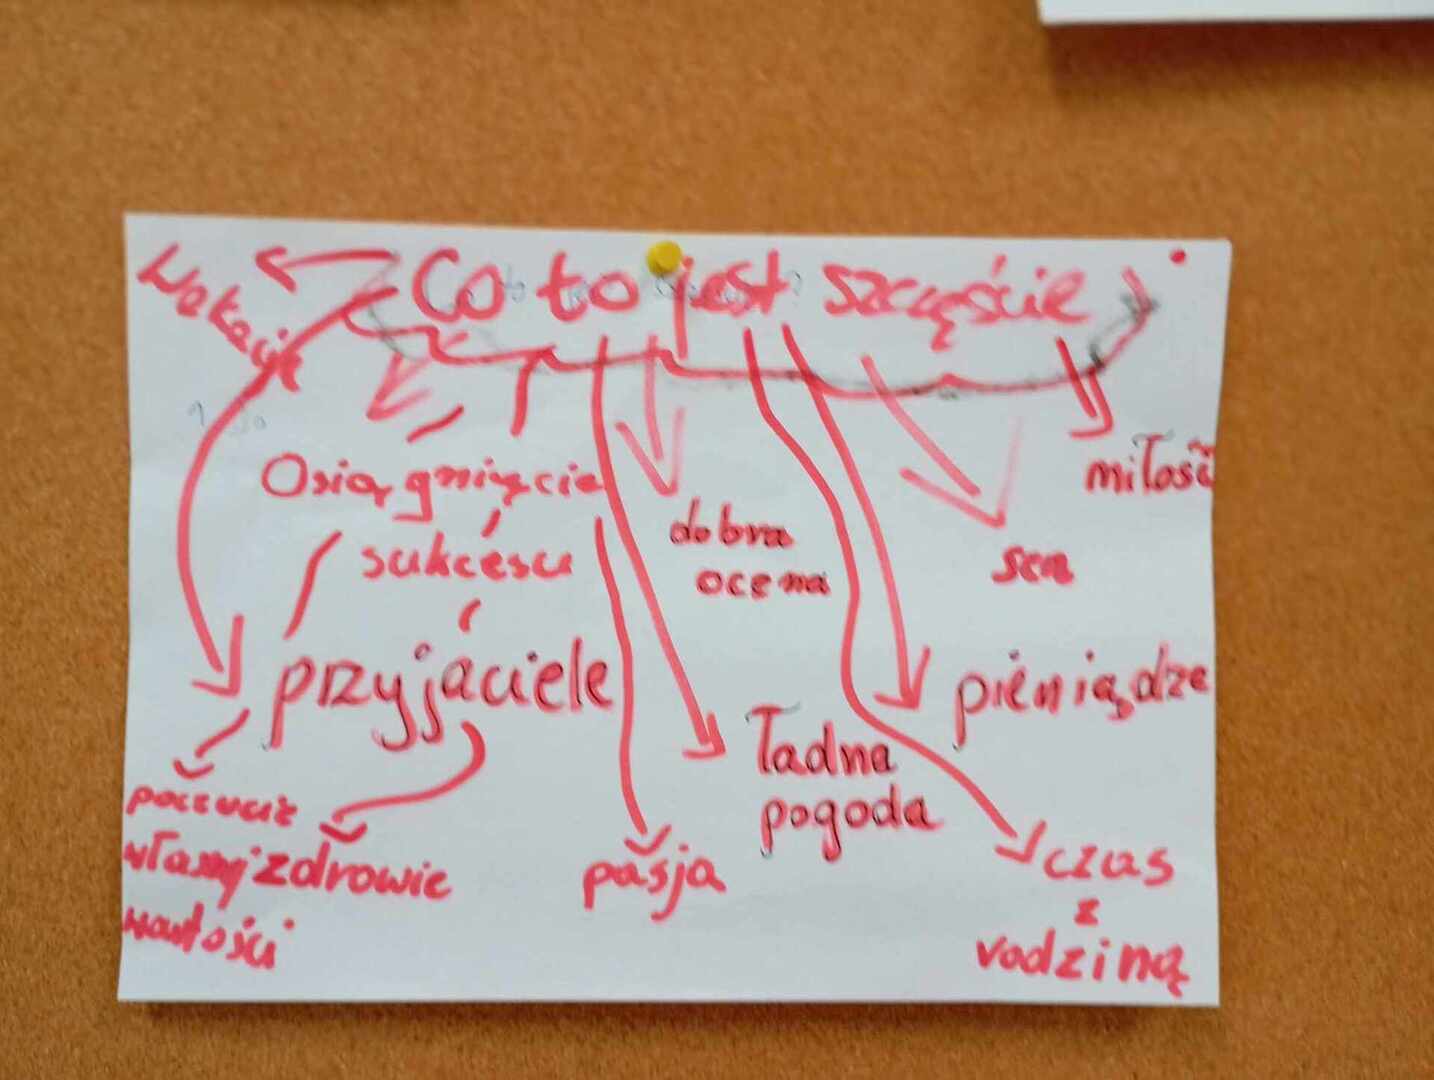 Co to jest szczęście
Wakacje
Osiągnięcie
sukcesu
dobra
ocena
miłość
sen
przyjaciele
pieniądze
ładna
pogoda
poczucie
własnej
wartości
zdrowie
pasja
czas
z
rodziną